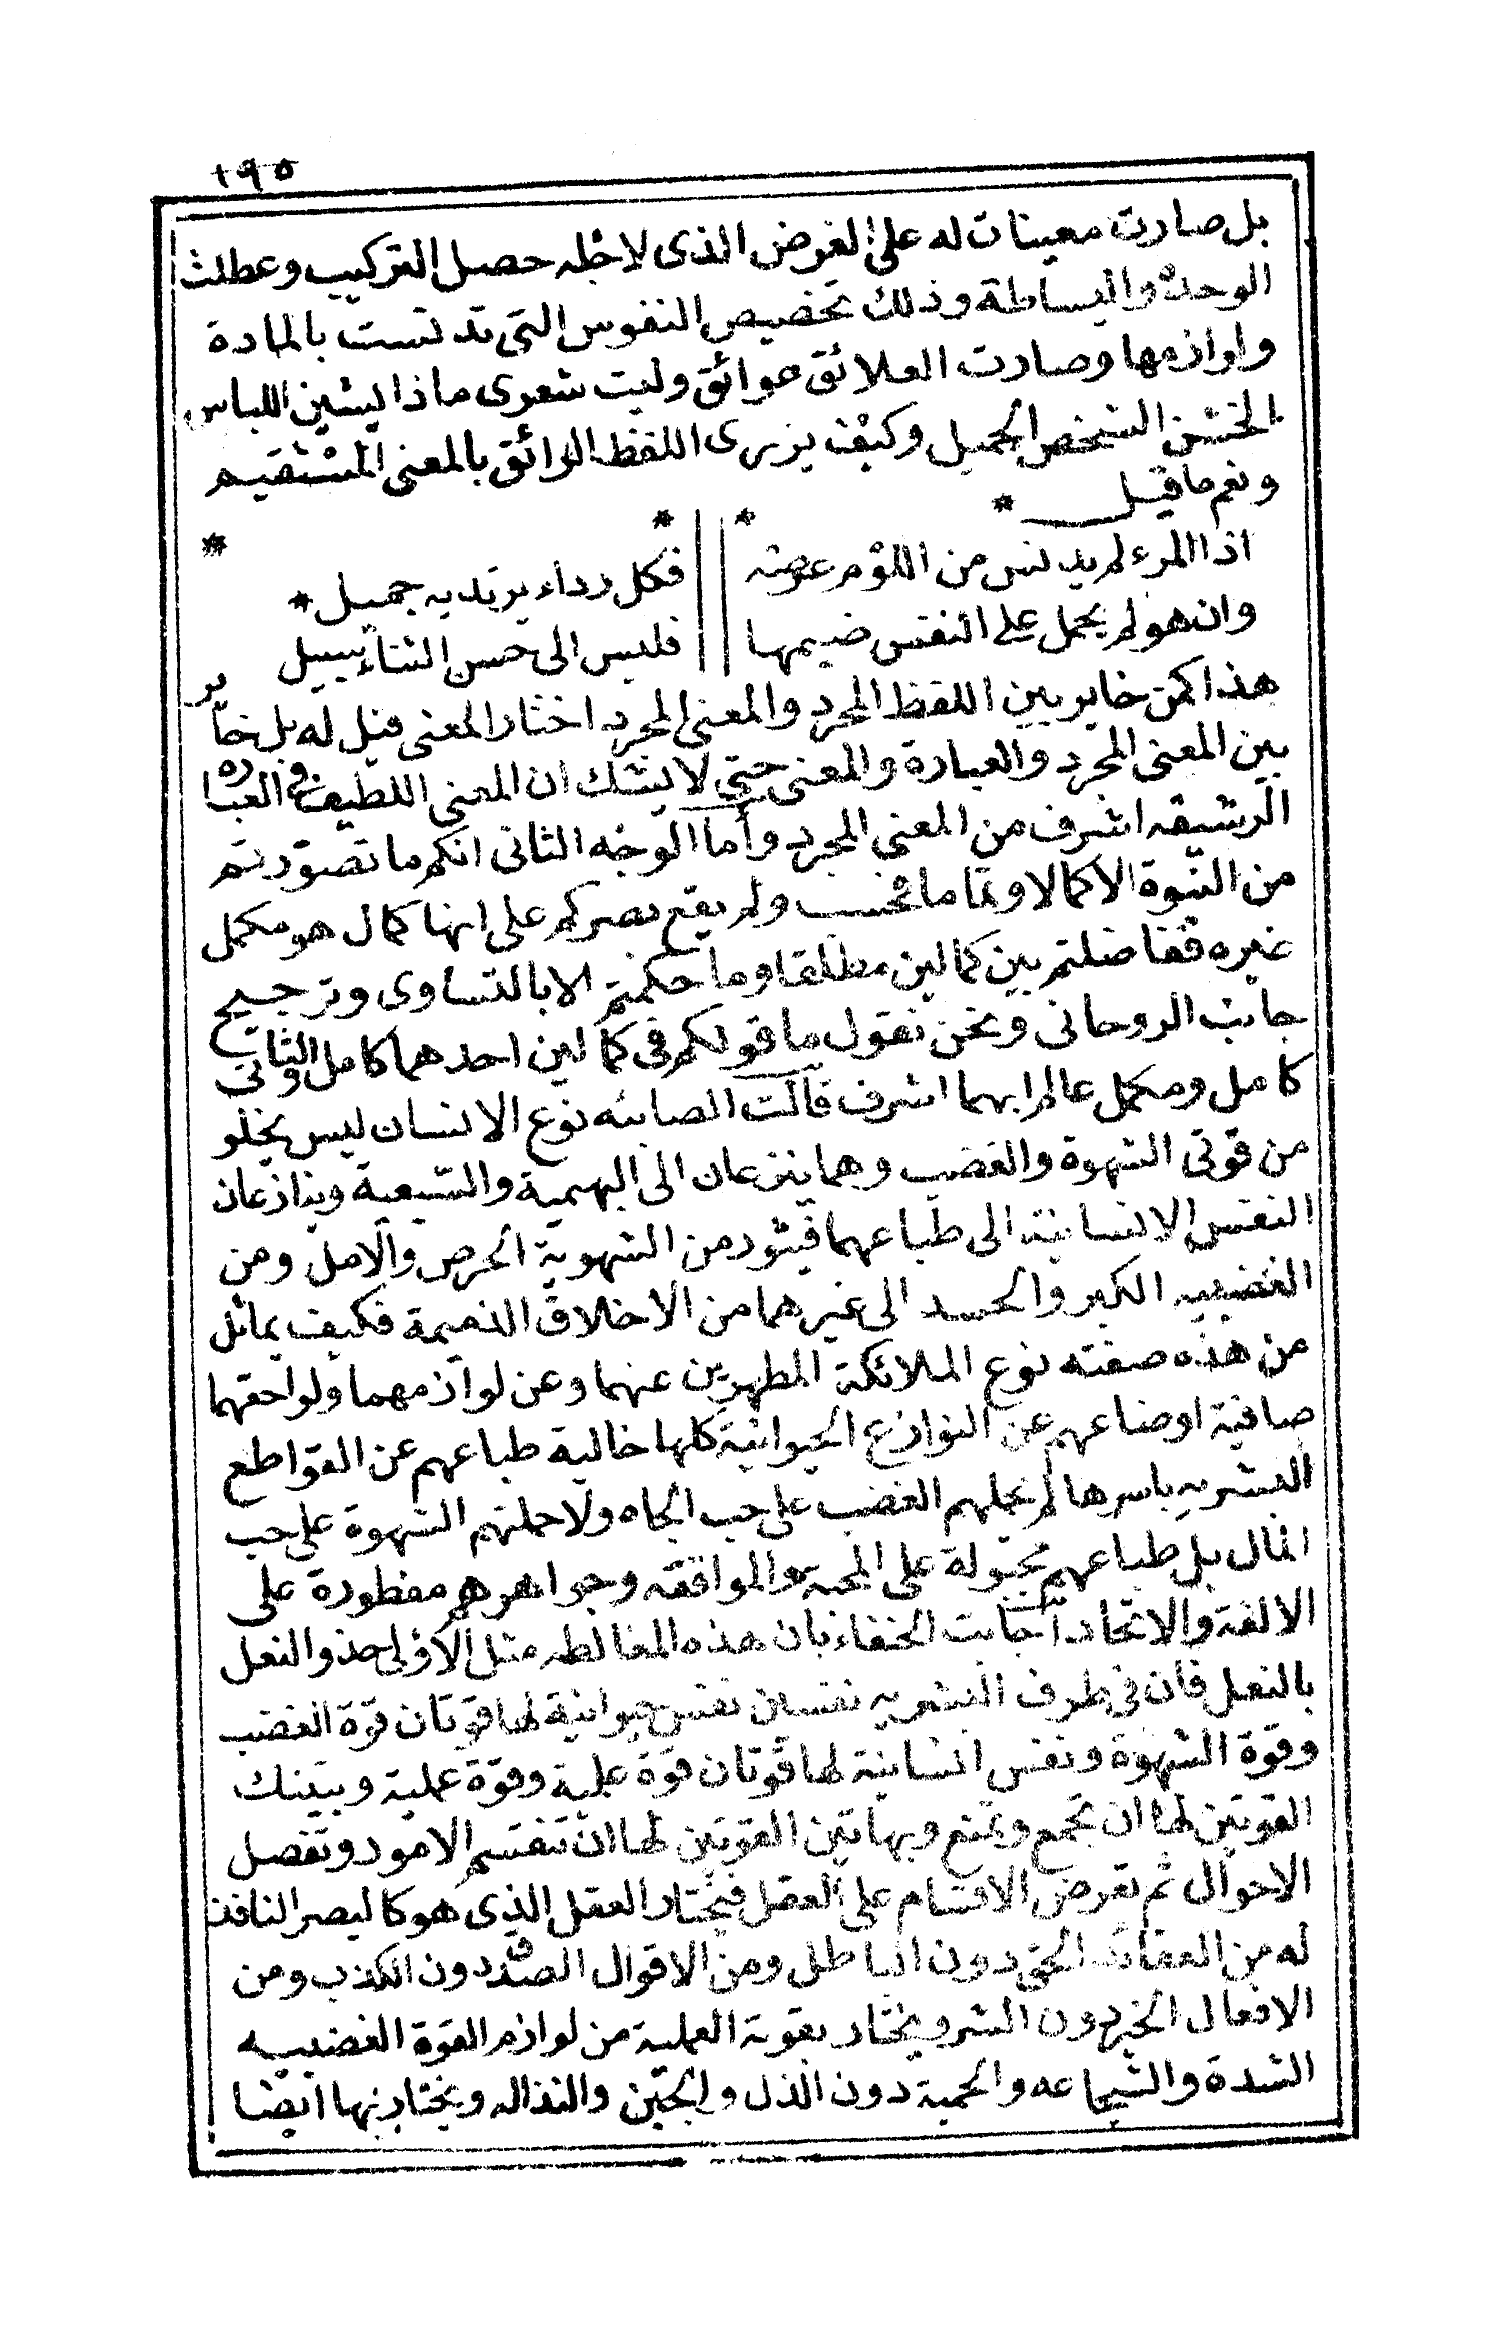 ١٩٥
بل صارت معينات له على الغرض الذى لاجله حصل التركيب وعطلت
الوحدة والبساطة وذلك تخصيص النفوس التى تدنست بالمادة
ولوازمها وصارت العلائق عوائق وليت شعرى ماذا يشين اللباس
الخشن الشخص الجميل وكيف يزرى اللفظ الرائق بالمعنى المستقيم
ونعم ما قيل * * * *
اذا المرء لم يدنس من اللؤم عرضه فكل رداء يرتديه جميل *
وان هو لم يحمل على النفس ضيمها فليس الى حسن الثناء سبيل
هذا كمن خاير بين اللفظ المجرد والمعنى المجرد اختار المعنى قيل له بل خاير
بين المعنى المجرد والعبارة والمعنى حتى لا يشك ان المعنى اللطيف فى العبارة
الرشيقه اشرف من المعنى المجرد وأما الوجه الثانى انكم ما تصورتم
من النبوة الا كمالا وتماما فحسب ولم يقع بصركم على انها كمال هو مكمل
غيره ففاضلتم بين كمالين مطلقا وما حكمتم الا بالتساوى وترجيح
جانب الروحانى ونحن نقول ما قولكم فى كمالين احدهما كامل والثانى
كامل ومكمل عالم ايهما اشرف قالت الصابئه نوع الانسان ليس يخلو
من قوتى الشهوة والغضب وهما ينزعان الى البهيمية والسبعية وينازعان
النفس الانسانية الى طباعهما فيثور من الشهوية الحرص والامل ومن
الغضبيه الكبر والحسد الى غيرهما من الاخلاق الذميمة فكيف يماثل
من هذه صفته نوع الملائكة المطهرين عنهما وعن لوازمهما ولواحقهما
صافية اوضاعهم عن النوازع الحيوانية كلها خالية طباعهم عن القواطع
البشريه باسرها لم يحملهم الغضب على حب الجاه ولا حملتهم الشهوة على حب
المال بل طباعهم مجبولة على المحبة والموافقه وجواهرهم مفطورة على
الالفة والاتحاد أجابت الحنفاء بان هذه المغالطه مثل الاولى حذو النعل
بالنعل فان فى طرف البشريه نفسين نفس حيوانية لها قوتان قوة الغضب
وقوة الشهوة ونفس انسانية لها قوتان قوة علمية وقوة عملية وبتينك
القوتين لها ان تجمع وتمنع وبهاتين القوتين لها ان تقسم الامور وتفصل
الاحوال ثم تعرض الاقسام على العقل فيختار العقل الذى هو كالبصر النافذ
له من العقائد الحق دون الباطل ومن الاقوال الصدق دون الكذب ومن
الافعال الخير دون الشر ويختار بقوته العملية من لوازم القوة الغضبيه
الشدة والشجاعه والحمية دون الذل والجبن والنذاله ويختار بها ايضا